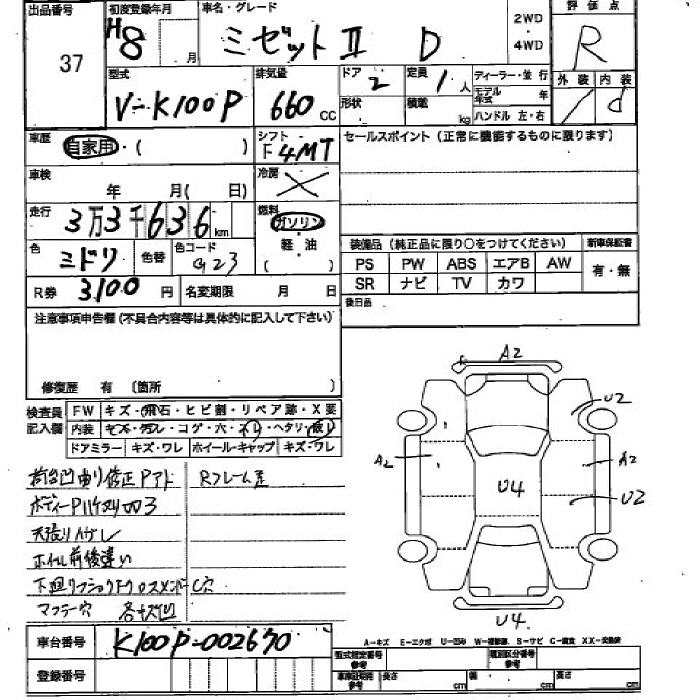 出品番号 初度登録年月 車名・グレード 2WD・4WD 評価点
37 H8 月 ミゼットⅡ D R
型式 排気量 ドア 2 定員 1人 ディーラー・並行 外装 内装
V-K100P 660 CC 形状 積載 kg モデル年式 年 d
ハンドル 左・右
車歴 自家用・( ) シフト F4MT セールスポイント (正常に機能するものに限ります)
車検 年 月( 日) 冷房 ×
走行 3万3千636km 燃料 ガソリン
軽油
( )
色 ミドリ 色替 色コード G23 装備品 (純正品に限り○をつけてください) 新車保証書
PS PW ABS エアB AW 有・無
R券 3,100円 名変期限 月 日 SR ナビ TV カワ
後日品
注意事項申告欄 (不具合内容等は具体的に記入して下さい)
修復歴 有 (箇所 )
検査員記入欄 FW キズ・飛石・ヒビ割・リペア跡・X要
内装 コゲ・穴・ ヘタリ
ドアミラー キズ・ワレ ホイール・キャップ キズ・ワレ
A2
U2
A2 A2
U4 U2
U4
修正Pアト Rフレーム
ボディー
天張りハガレ
ホイル前後違い
マフラー穴 各キズ凹
A-キズ E-エクボ U-凹み W-補修跡 S-サビ C-腐食 XX-交換済
車台番号 K100P-002670 型式指定番号 参考 類別区分番号 参考
登録番号 車庫証明用 参考 長さ cm 幅 cm 高さ cm